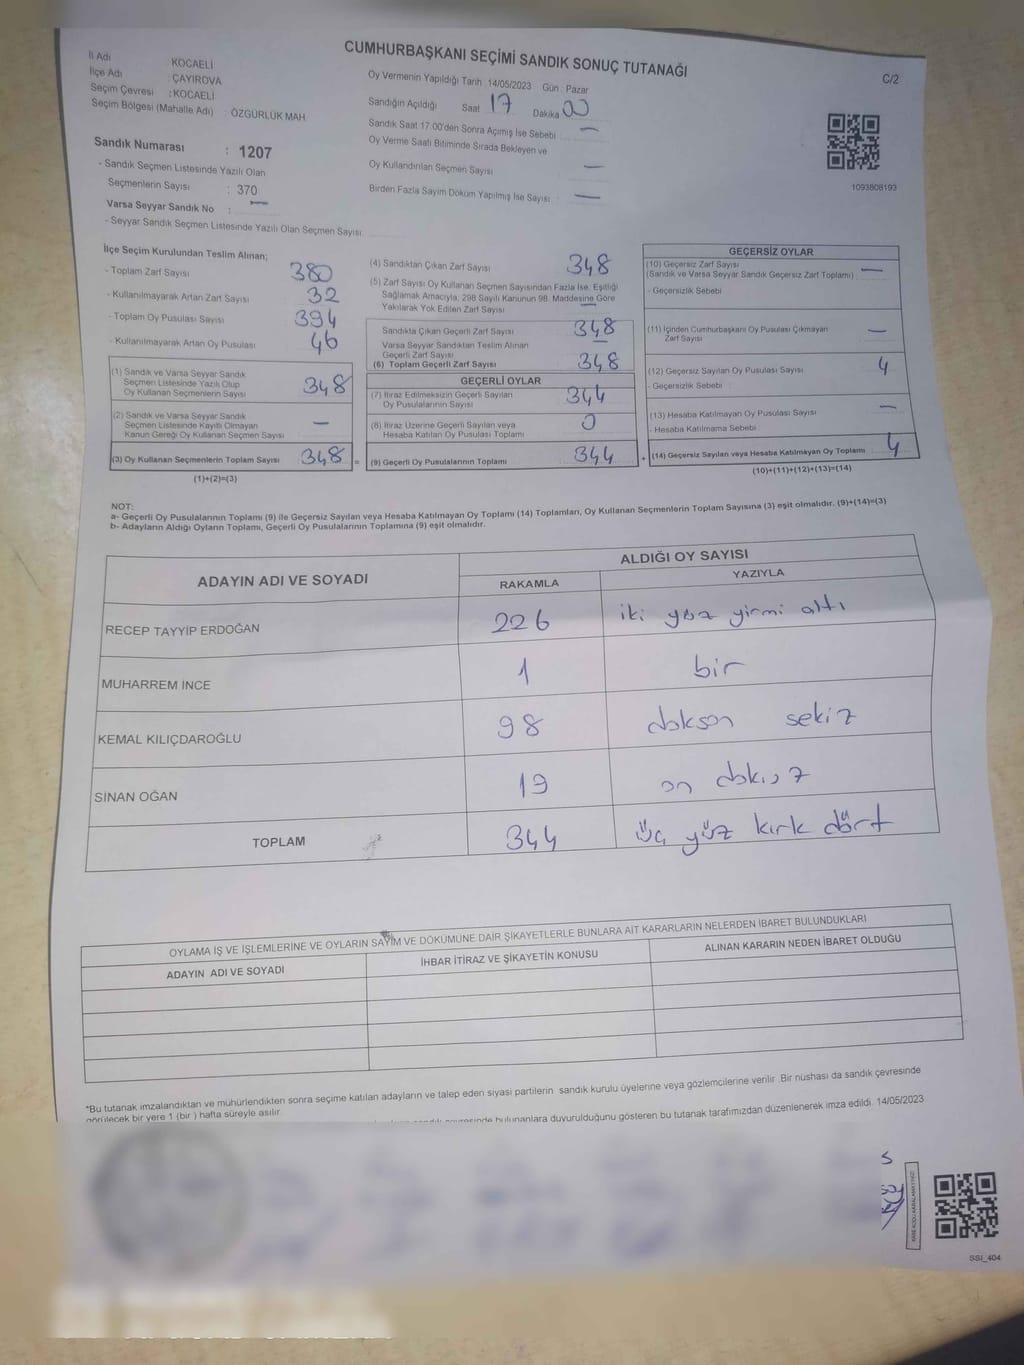 CUMHURBAŞKANI SEÇİMİ SANDIK SONUÇ TUTANAĞI
C/2
İl Adı KOCAELİ
İlçe Adı : ÇAYIROVA
Seçim Çevresi : KOCAELİ
Seçim Bölgesi (Mahalle Adı) : ÖZGÜRLÜK MAH.
Sandık Numarası : 1207
- Sandık Seçmen Listesinde Yazılı Olan
Seçmenlerin Sayısı : 370
Varsa Seyyar Sandık No : —
- Seyyar Sandık Seçmen Listesinde Yazılı Olan Seçmen Sayısı:
Oy Vermenin Yapıldığı Tarih :14/05/2023 Gün : Pazar
Sandığın Açıldığı Saat 17 Dakika 00
Sandık Saat 17:00'den Sonra Açımış İse Sebebi —
Oy Verme Saati Bitiminde Sırada Bekleyen ve
Oy Kullandırılan Seçmen Sayısı —
Birden Fazla Sayım Döküm Yapılmış İse Sayısı : —
1093808193
İlçe Seçim Kurulundan Teslim Alınan;
- Toplam Zarf Sayısı 380
- Kullanılmayarak Artan Zarf Sayısı 32
- Toplam Oy Pusulası Sayısı 394
- Kullanılmayarak Artan Oy Pusulası 46
(1) Sandık ve Varsa Seyyar Sandık
Seçmen Listesinde Yazılı Olup
Oy Kullanan Seçmenlerin Sayısı 348
(2) Sandık ve Varsa Seyyar Sandık
Seçmen Listesinde Kayıtlı Olmayan
Kanun Gereği Oy Kullanan Seçmen Sayısı —
(3) Oy Kullanan Seçmenlerin Toplam Sayısı 348 =
(1)+(2)=(3)
(4) Sandıktan Çıkan Zarf Sayısı 348
(5) Zarf Sayısı Oy Kullanan Seçmen Sayısından Fazla İse, Eşitliği
Sağlamak Amacıyla, 298 Sayılı Kanunun 98. Maddesine Göre
Yakılarak Yok Edilen Zarf Sayısı —
Sandıkta Çıkan Geçerli Zarf Sayısı 348
Varsa Seyyar Sandıktan Teslim Alınan
Geçerli Zarf Sayısı —
(6) Toplam Geçerli Zarf Sayısı 348
GEÇERLİ OYLAR
(7) İtiraz Edilmeksizin Geçerli Sayılan
Oy Pusulalarının Sayısı 344
(8) İtiraz Üzerine Geçerli Sayılan veya
Hesaba Katılan Oy Pusulası Toplamı 0
(9) Geçerli Oy Pusulalarının Toplamı 344 +
GEÇERSİZ OYLAR
(10) Geçersiz Zarf Sayısı
(Sandık ve Varsa Seyyar Sandık Geçersiz Zarf Toplamı) —
- Geçersizlik Sebebi :
(11) İçinden Cumhurbaşkanı Oy Pusulası Çıkmayan
Zarf Sayısı —
(12) Geçersiz Sayılan Oy Pusulası Sayısı 4
- Geçersizlik Sebebi :
(13) Hesaba Katılmayan Oy Pusulası Sayısı —
- Hesaba Katılmama Sebebi :
(14) Geçersiz Sayılan veya Hesaba Katılmayan Oy Toplamı 4
(10)+(11)+(12)+(13)=(14)
NOT:
a- Geçerli Oy Pusulalarının Toplamı (9) ile Geçersiz Sayılan veya Hesaba Katılmayan Oy Toplamı (14) Toplamları, Oy Kullanan Seçmenlerin Toplam Sayısına (3) eşit olmalıdır. (9)+(14)=(3)
b- Adayların Aldığı Oyların Toplamı, Geçerli Oy Pusulalarının Toplamına (9) eşit olmalıdır.
ADAYIN ADI VE SOYADI ALDIĞI OY SAYISI
RAKAMLA YAZIYLA
RECEP TAYYİP ERDOĞAN 226 iki yüz yirmi altı
MUHARREM İNCE 1 bir
KEMAL KILIÇDAROĞLU 98 doksan sekiz
SİNAN OĞAN 19 on dokuz
TOPLAM 344 üç yüz kırk dört
OYLAMA İŞ VE İŞLEMLERİNE VE OYLARIN SAYIM VE DÖKÜMÜNE DAİR ŞİKAYETLERLE BUNLARA AİT KARARLARIN NELERDEN İBARET BULUNDUKLARI
ADAYIN ADI VE SOYADI İHBAR İTİRAZ VE ŞİKAYETİN KONUSU ALINAN KARARIN NEDEN İBARET OLDUĞU
*Bu tutanak imzalandıktan ve mühürlendikten sonra seçime katılan adayların ve talep eden siyasi partilerin sandık kurulu üyelerine veya gözlemcilerine verilir. Bir nüshası da sandık çevresinde
görülecek bir yere 1 (bir ) hafta süreyle asılır.
bulunanlara duyurulduğunu gösteren bu tutanak tarafımızdan düzenlenerek imza edildi. 14/05/2023
SSI_404